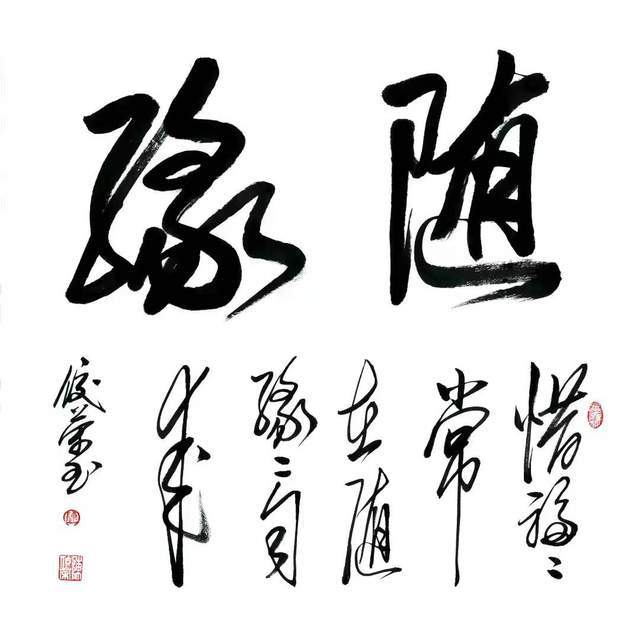 随缘
惜福〻
常
在随
缘〻自
来
俊荣书